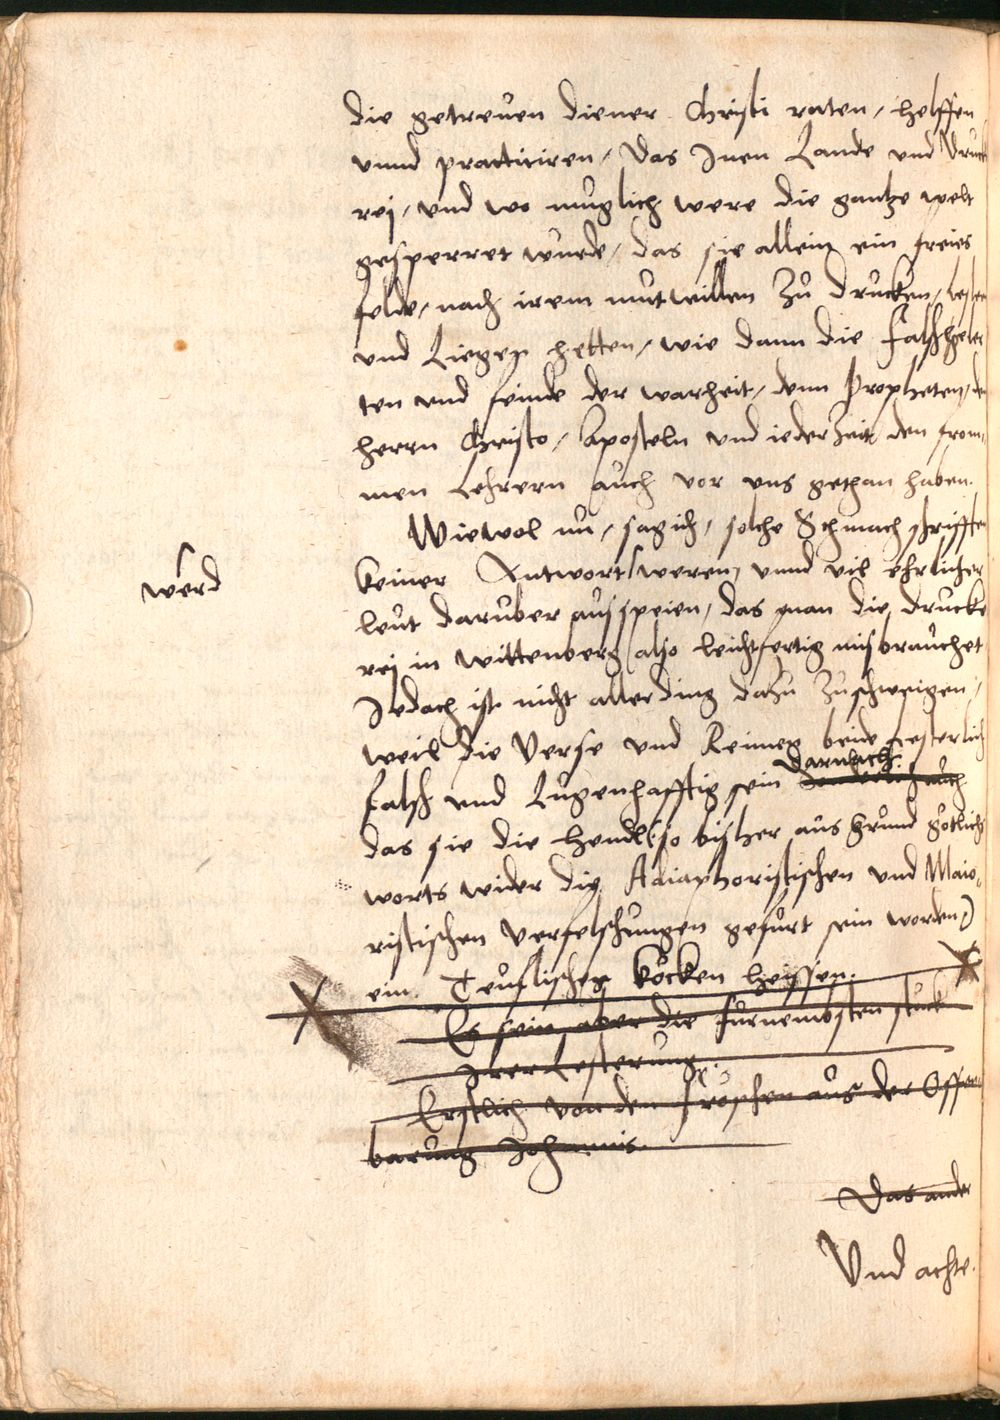 die getreuen diener Christi raten, helffen
vnnd practiciren, das Jnen Lande vnd Druck
rej, vnd wo muglich were die gantze welt
gesperret wurde, das sie allein ein freies
felde, nach irem mutwillen zů drucken,
vnd Liegen hetten, wie dann die
ten vnd feinde der warheit, denn Propheten, de
herrn Christo, Aposteln vnd iederzeit den from,
men Lehrern auch vor vns gethan haben.
Wiewol nu, sag ich, solche Schmach schrifften
keiner Antwort weren, vnnd vil ehrlicher
werd
leut daruber ausspeien, das man die drucke
rej in Wittenberg also leichtfertig misbrauchet
Jedoch ist nicht allerding dazu zuschweigen,
weil die Verse vnd Reimen beide lesterlich
falsch vnd Lugenhafftig sein darnach
das sie die hendel (so bisher aus grund götlichs
worts wider die Adiaphoristischen vnd Maio,
ristischen Verfelschungen gefurt sein worden)
ein Teuflischen köcken heissen.
Es sein aber die furnembsten stuck
irer Lesterung.
Erstlich von den fröschen aus der Offen
barung Johannis.
Das ander
Vnd achte.